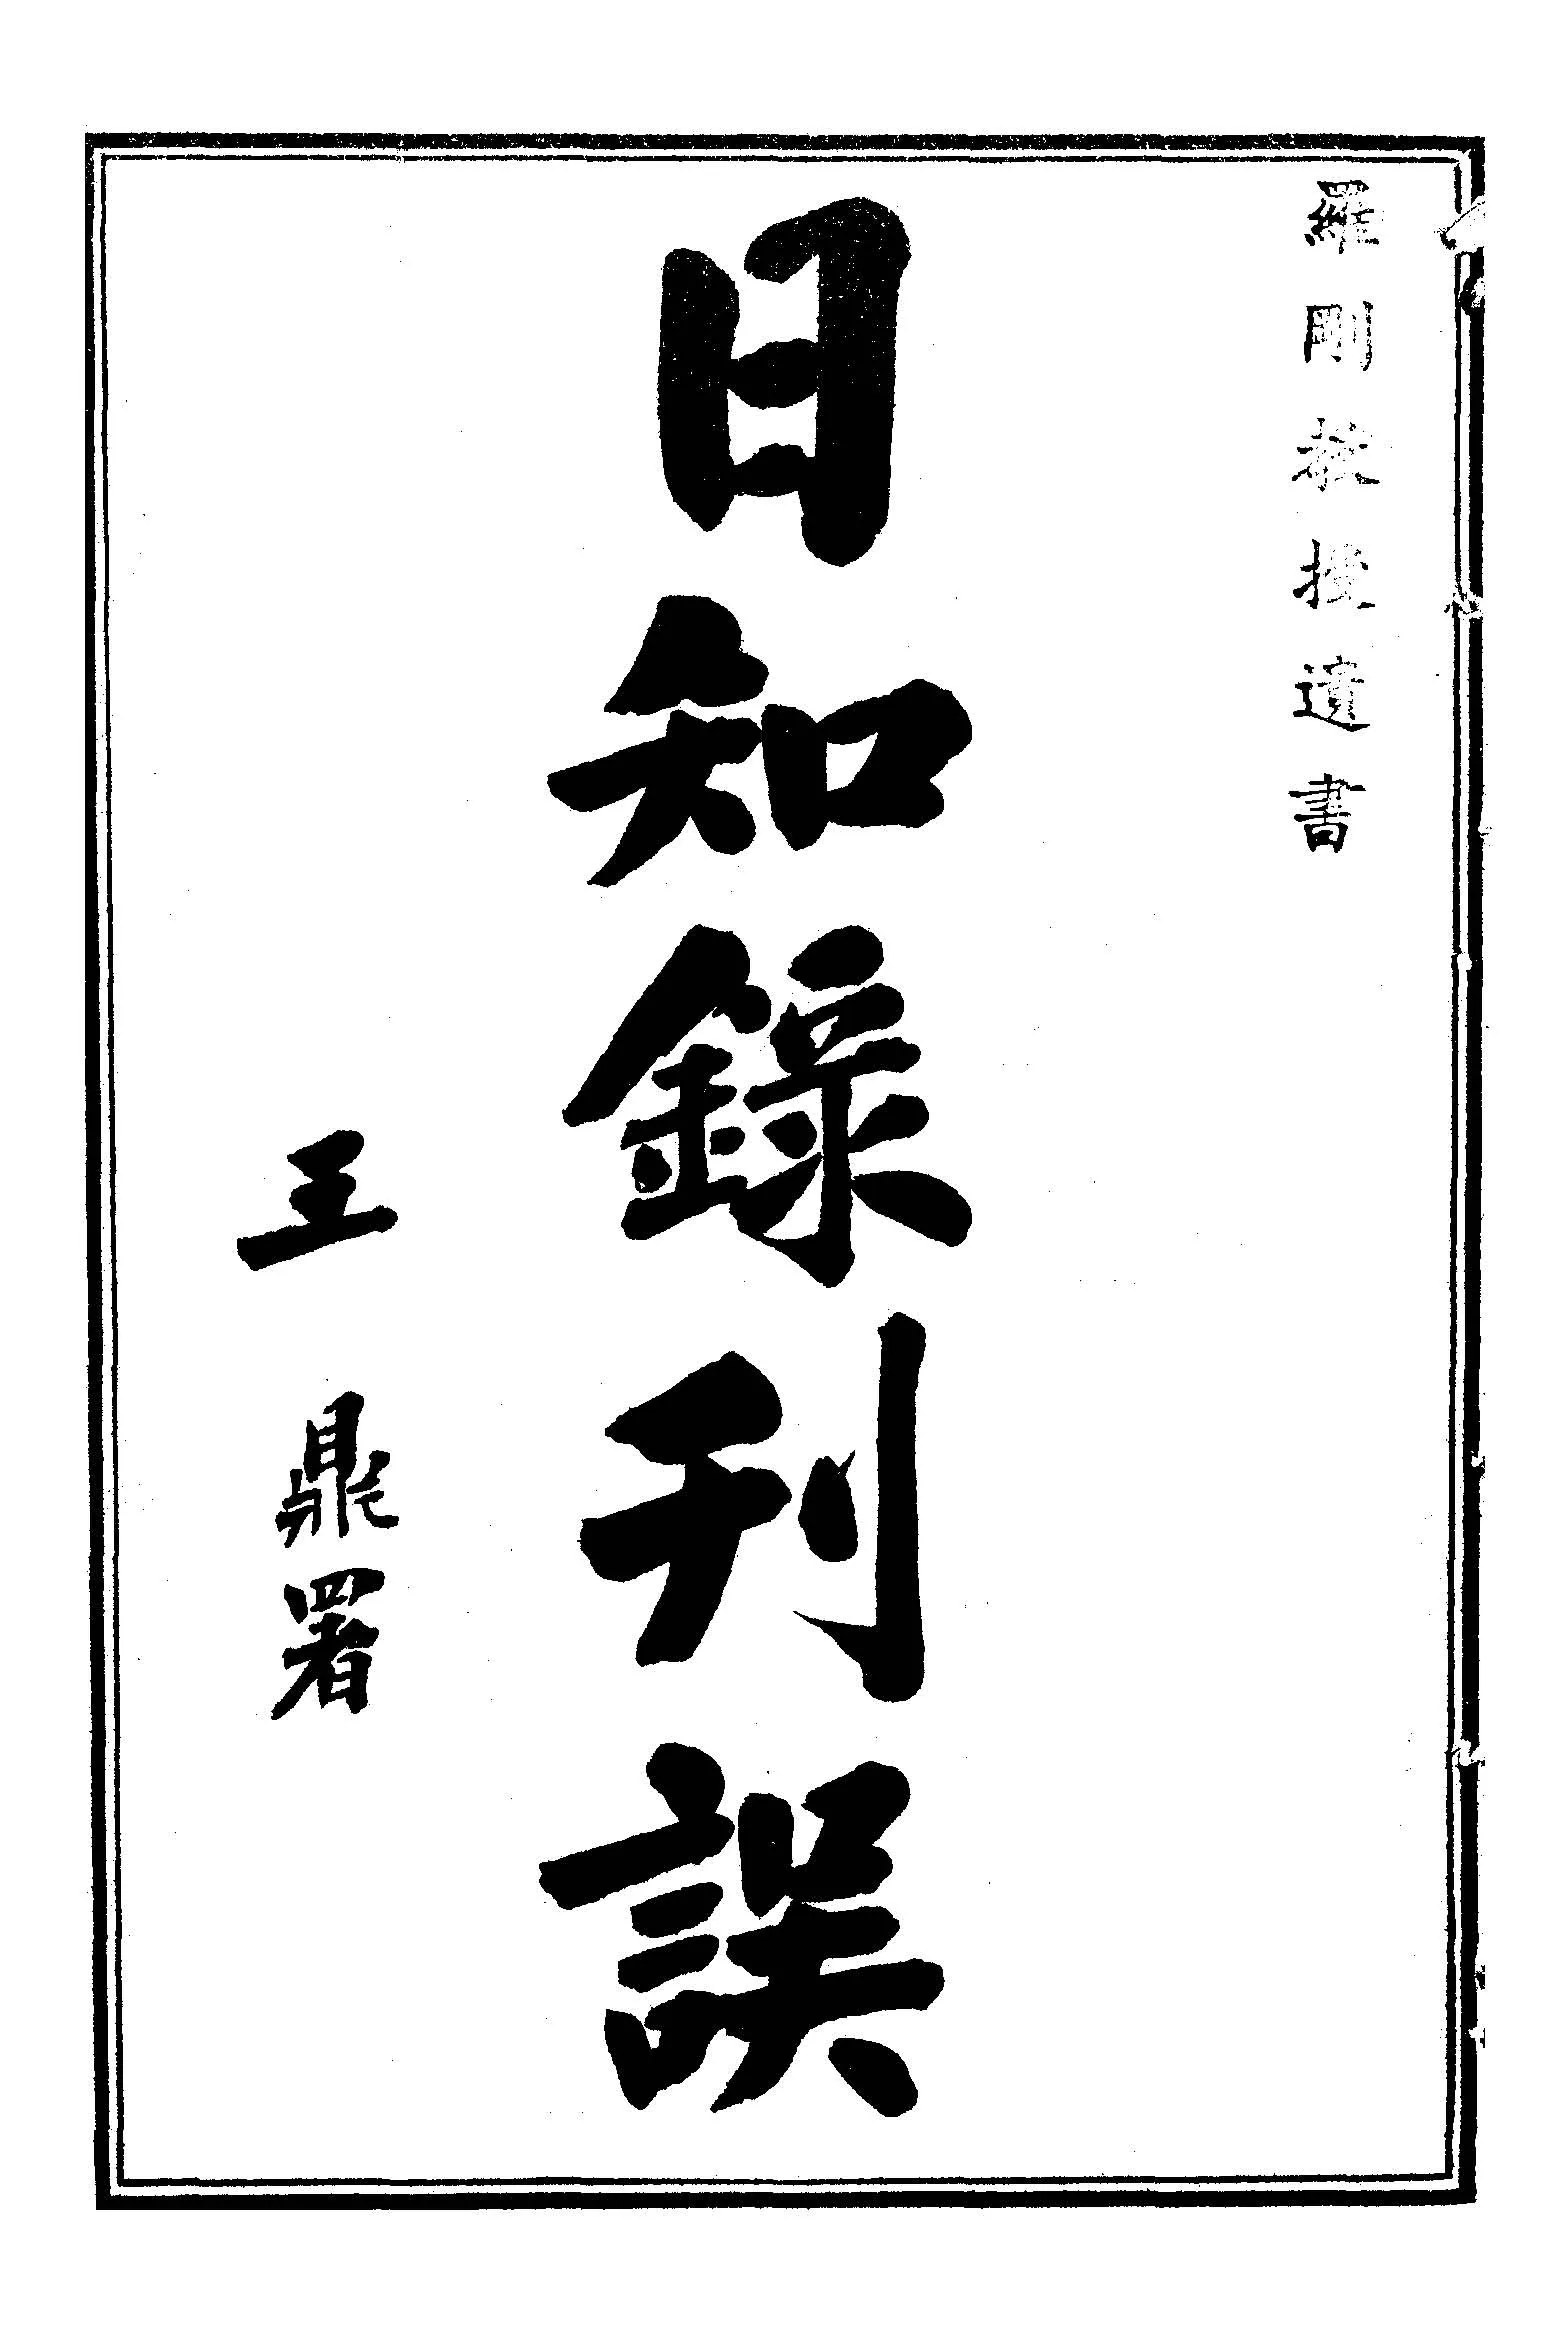 羅剛教授遺書
日知錄刊誤
王鼎署